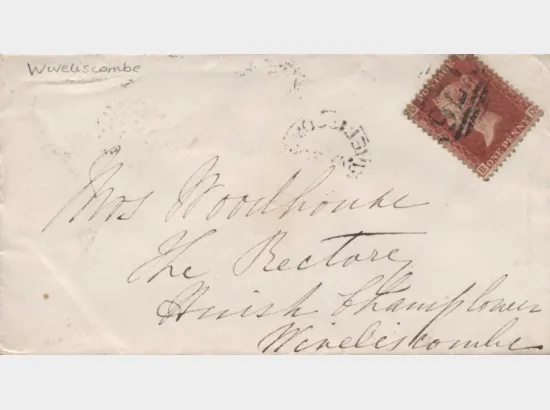 Wiveliscombe
ONE PENNY
Mrs Woodhouse
The Rectory
Huish Champflower
Wiveliscombe